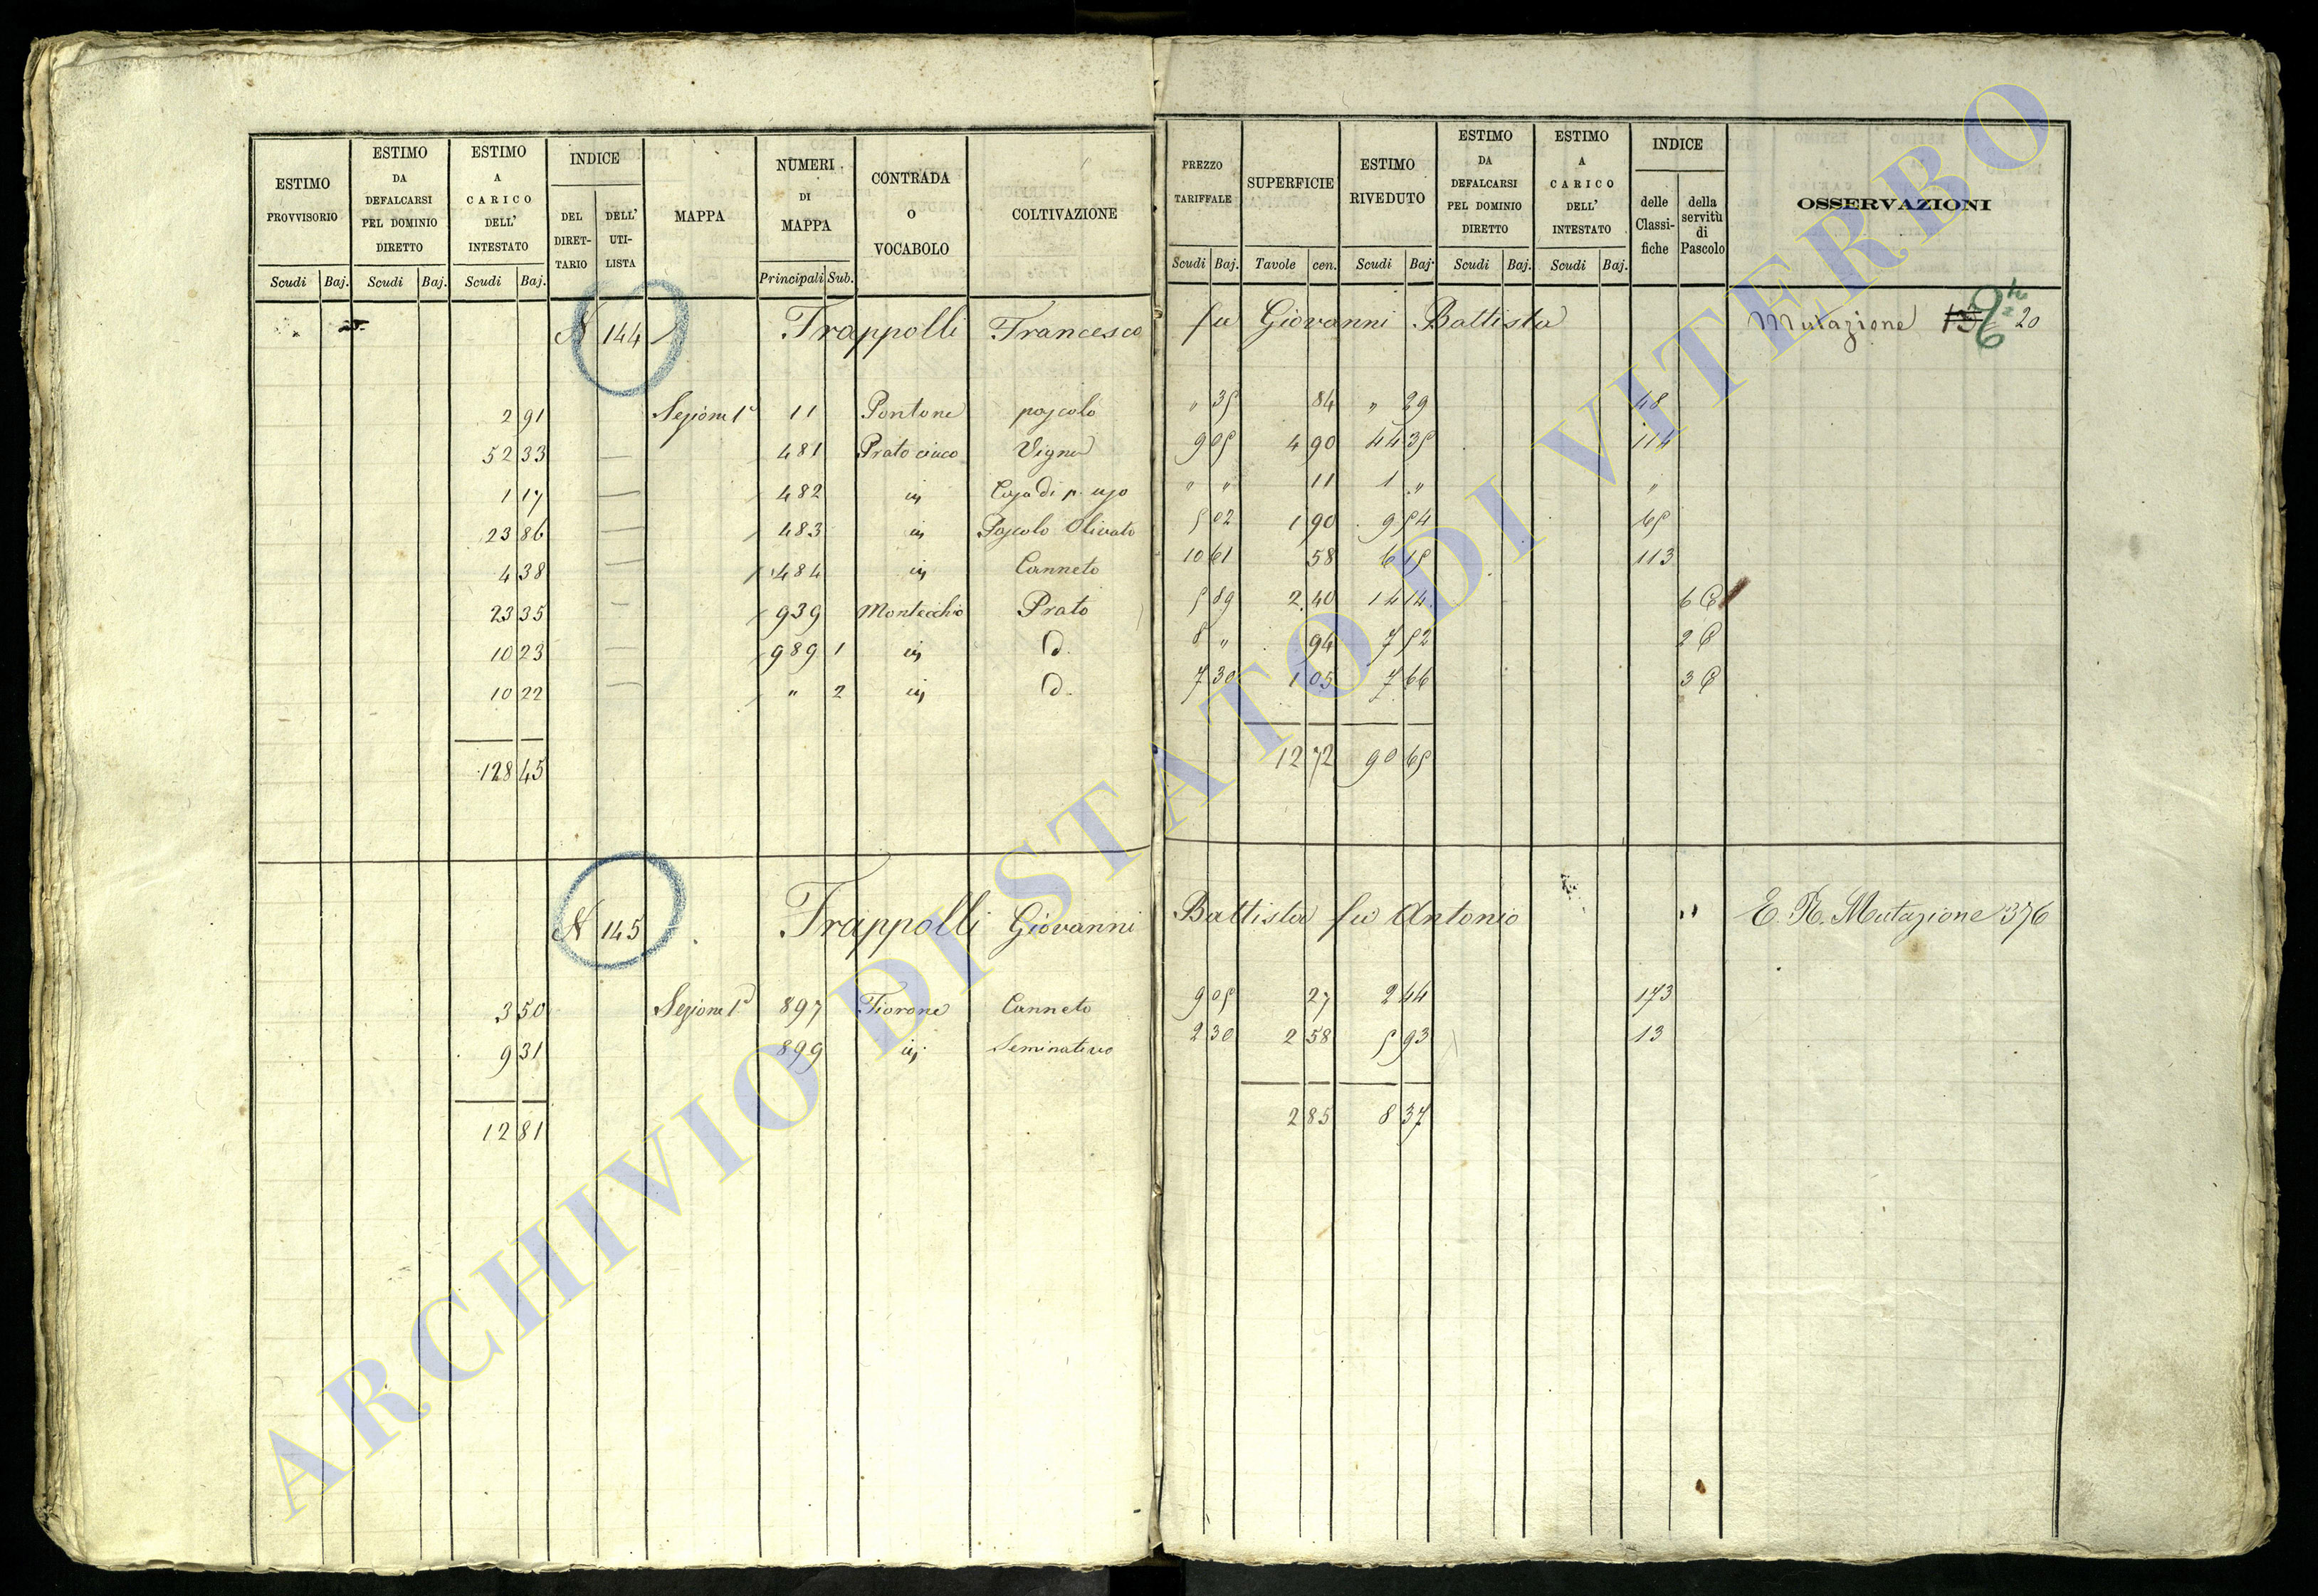 ESTIMO PROVVISORIO | ESTIMO DA DEFALCARSI PEL DOMINIO DIRETTO | ESTIMO A CARICO DELL' INTESTATO | INDICE | MAPPA | NUMERI DI MAPPA | CONTRADA O VOCABOLO | COLTIVAZIONE | PREZZO TARIFFALE | SUPERFICIE | ESTIMO RIVEDUTO | ESTIMO DA DEFALCARSI PEL DOMINIO DIRETTO | ESTIMO A CARICO DELL' INTESTATO | INDICE | OSSERVAZIONI
DEL DIRET-TARIO | DELL' UTI-LISTA | delle Classi-fiche | della servitù di Pascolo
Scudi | Baj. | Scudi | Baj. | Scudi | Baj. | Principali | Sub. | Scudi | Baj. | Tavole | cen. | Scudi | Baj. | Scudi | Baj. | Scudi | Baj.
N 144 Trappolli Francesco fu Giovanni Battista Mutazione 20
2 91 Sezione 1ª 11 Pontone pascolo " 35 84 " 29 48
52 33 481 Vigna 9 05 4 90 44 35 114
1 17 482 in Casa di p. uso " " 11 1 " "
23 86 483 in Pascolo Olivato 5 02 1 90 9 54 65
4 38 484 in Canneto 10 61 58 6 15 113
23 35 939 Montecchio Prato 5 89 2 40 14 14 6
10 23 989 1 in d. 8 " 94 7 52 2
10 22 " 2 in d. 7 30 1 05 7 66 3
128 45 12 72 90 65
N 145 Trappolli Giovanni Battista fu Antonio " E. R. Mutazione 376
3 50 Sezione 1ª 897 Fiorone Canneto 9 05 27 2 44 173
9 31 899 in Seminativo 2 30 2 58 5 93 13
12 81 2 85 8 37
ARCHIVIO DI STATO DI VITERBO